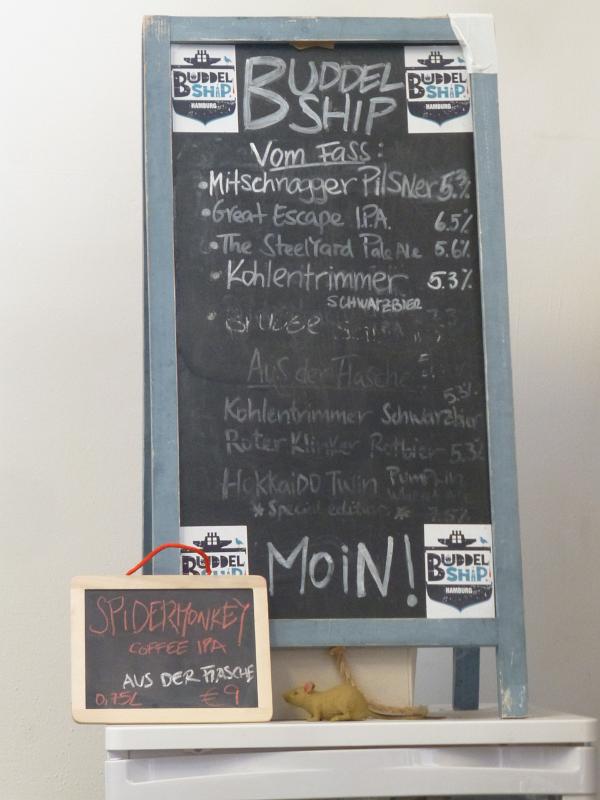 BUDDEL
SHIP
BUDDEL
SHIP
HAMBURG
BUDDEL
SHIP
HAMBURG
Vom FASS:
• Mitschnagger PilSNer 5.3%
• Great Escape I.P.A. 6.5%
• The SteelYard Pale Ale 5.6%
• Kohlentrimmer 5.3%
SCHWARZBIER
Aus der Flasche
5.3%
Kohlentrimmer Schwarzbier
Roter Klinker Rotbier 5.3%
HokkaiDO Twin Pumpkin
* Special edition * 7.5%
MOiN!
BUDDEL
SHIP
BUDDEL
SHIP
HAMBURG
SPiDERMONKEY
COFFEE IPA
AUS DER FLASCHE
0,75L €9